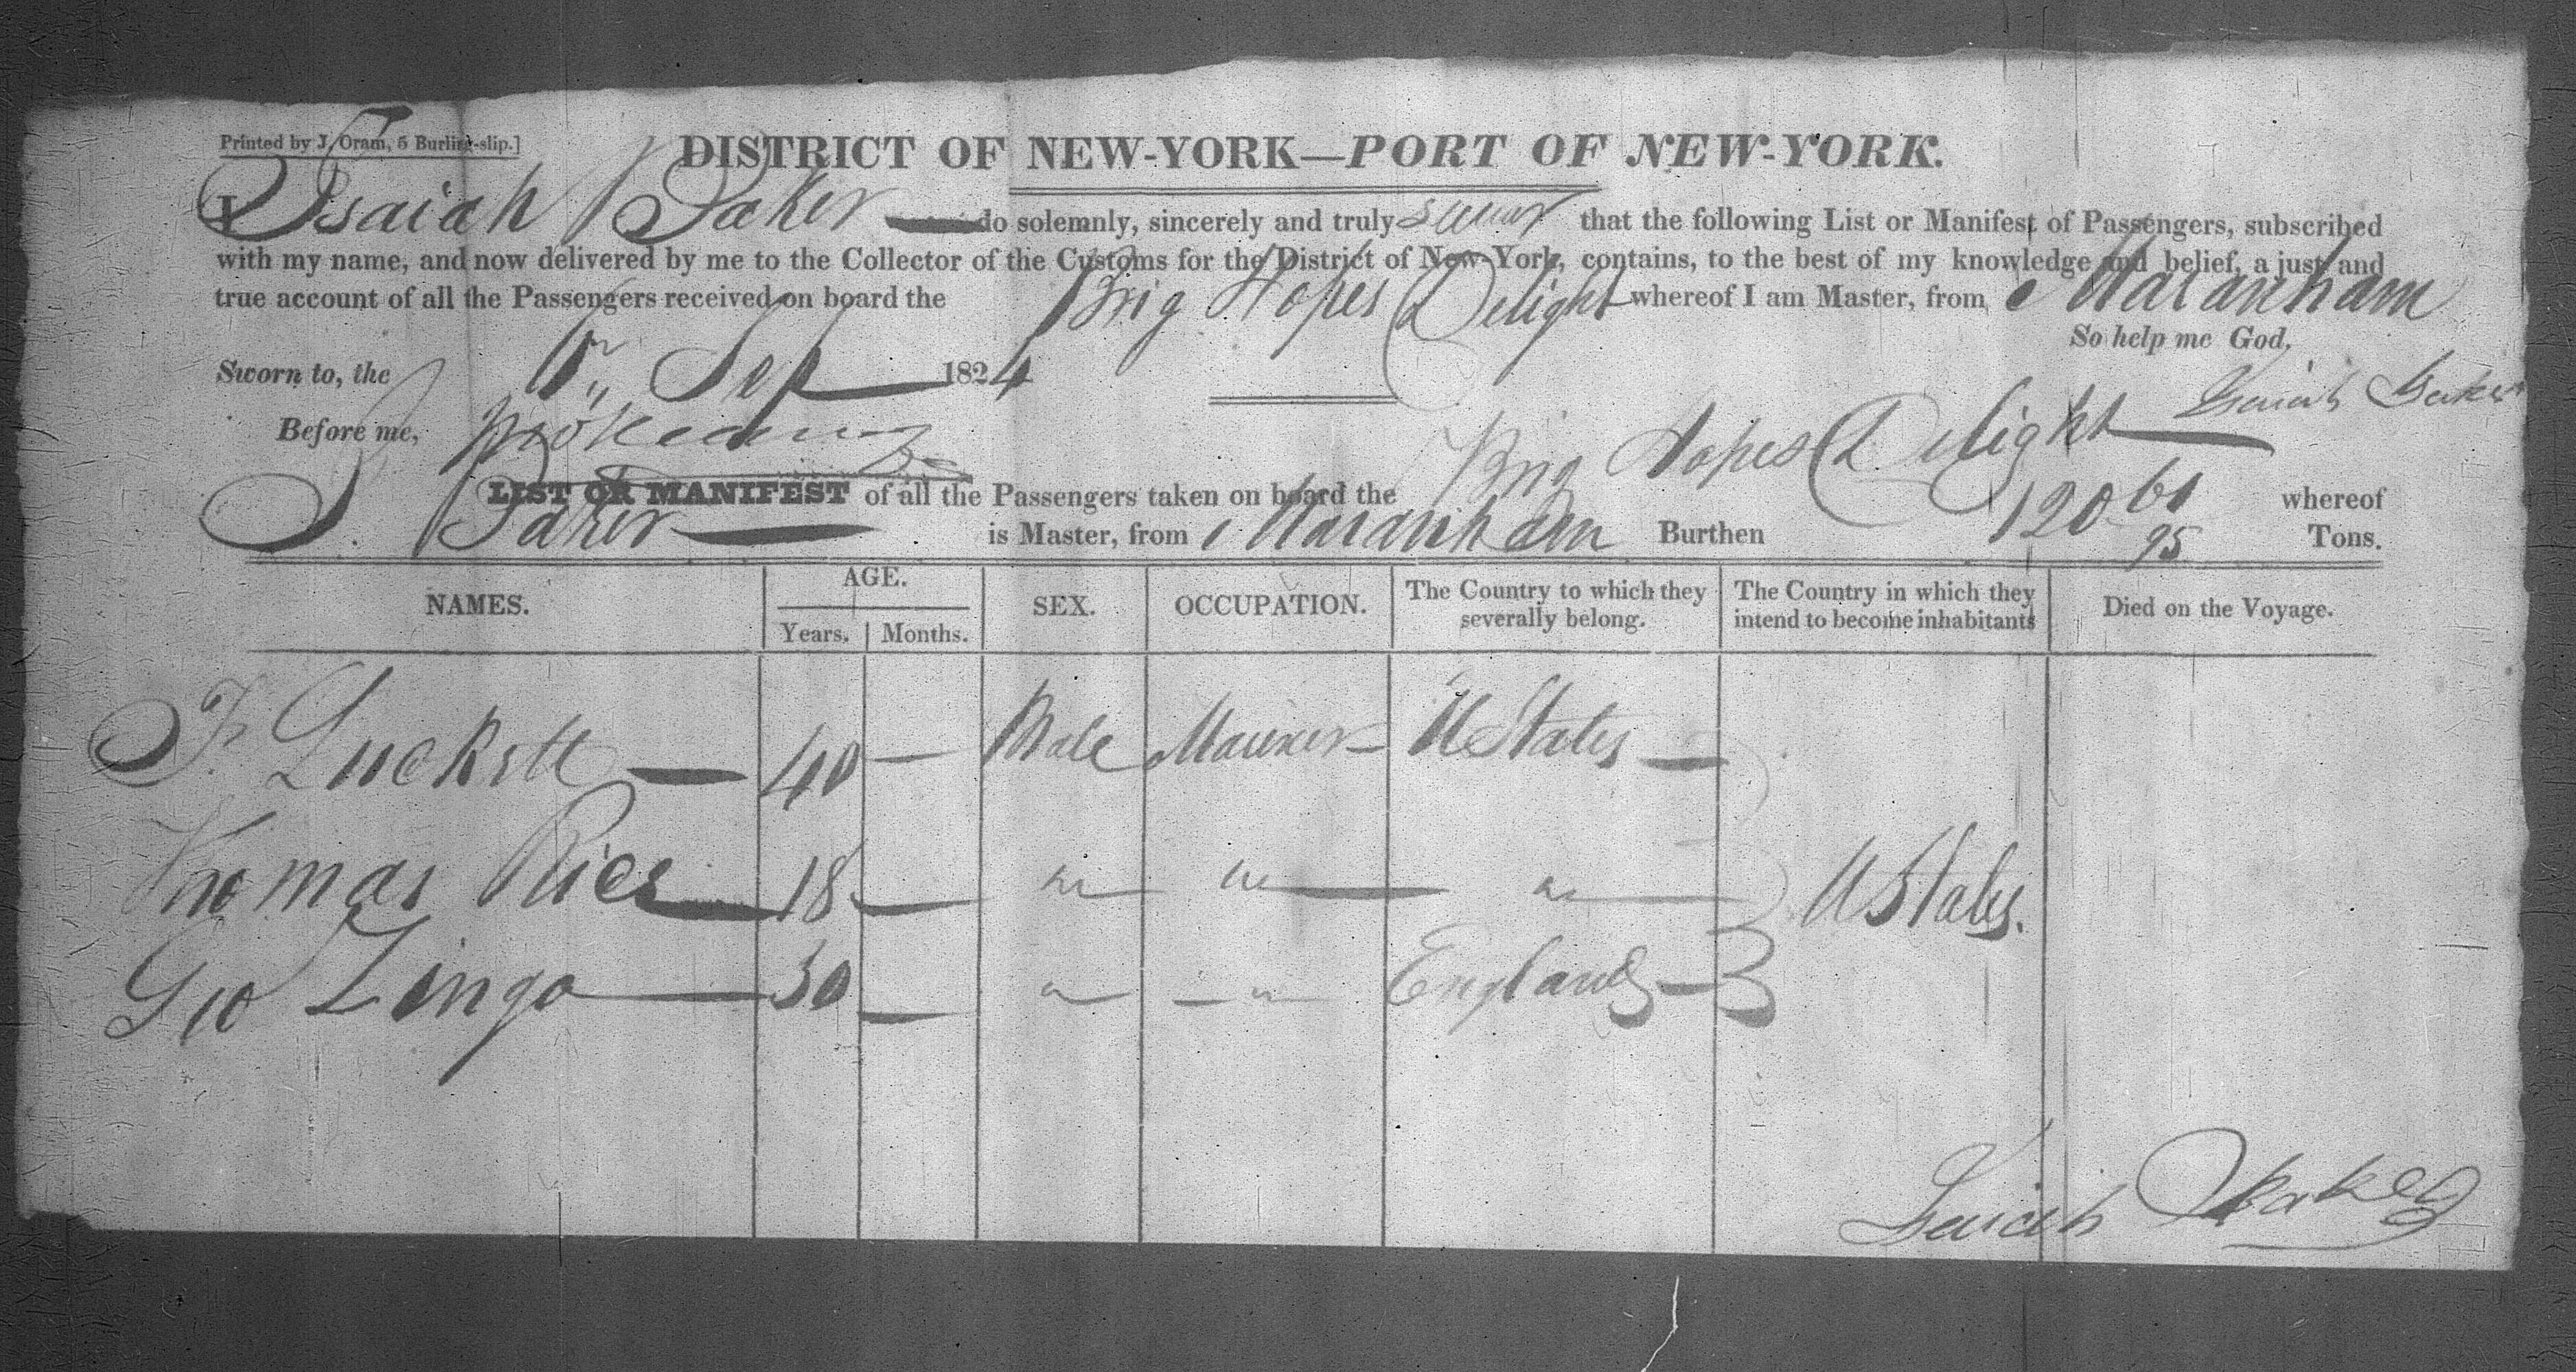 Printed by J. Oram, 5 Burling-slip.]
DISTRICT OF NEW-YORK—PORT OF NEW-YORK.
I Isaiah Baker do solemnly, sincerely and truly swear that the following List or Manifest of Passengers, subscribed
with my name, and now delivered by me to the Collector of the Customs for the District of New-York, contains, to the best of my knowledge and belief, a just and
true account of all the Passengers received on board the Brig Hopes Delight whereof I am Master, from Maranham
So help me God.
Sworn to, the Sep 1824
Isaiah Baker
Before me,
LIST OR MANIFEST of all the Passengers taken on board the Brig Hopes Delight whereof
I. Baker is Master, from Maranham Burthen 120 61/95 Tons.
NAMES. AGE. SEX. OCCUPATION. The Country to which they severally belong. The Country in which they intend to become inhabitants Died on the Voyage.
Years. Months.
Luckett — 40 — Male Mariner — U States —
Thomas Rice — 18 — " — " — " — U States.
Geo Zingo — 30 — " — " — England —
Isaiah Baker